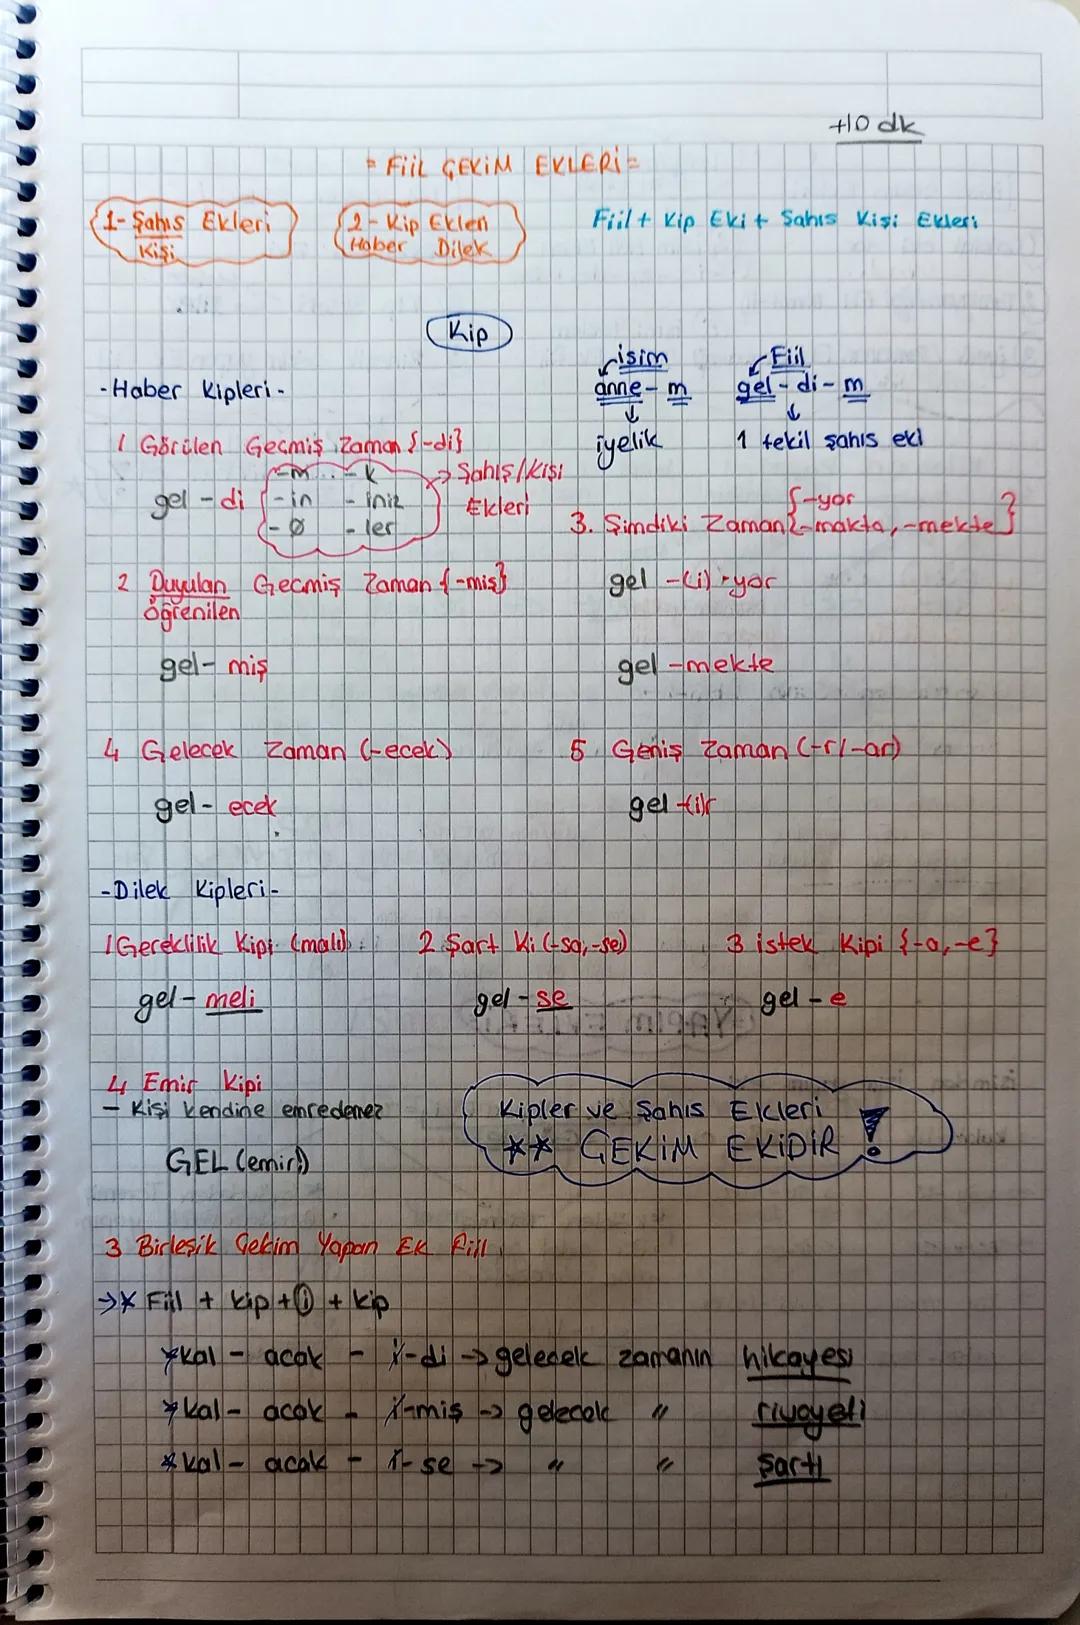 +10 dk
= FİİL ÇEKİM EKLERİ =
1- Şahıs Ekleri
Kişi
2- Kip Ekleri
Haber Dilek
Fiil + Kip Eki + Şahıs Kişi Ekleri
Kip
isim
anne - m
iyelik
Fiil
gel - di - m
1 tekil şahıs eki
- Haber Kipleri -
1 Görülen Geçmiş Zaman {-di}
gel - di
-m .. -k
-in - iniz
- Ø - ler
→ Şahıs/Kişi
Ekleri
2 Duyulan Geçmiş Zaman {-miş}
Öğrenilen
gel - miş
3. Şimdiki Zaman {-yor
-makta, -mekte}
?
gel -(i) -yor
gel -mekte
4 Gelecek Zaman (-ecek)
gel - ecek
5 Geniş Zaman (-r/-ar)
gel -(i)r
- Dilek Kipleri -
1 Gereklilik Kipi (malı)
gel - meli
2 Şart Ki (-sa, -se)
gel - se
3 istek Kipi {-a, -e}
gel - e
4 Emir Kipi
- Kişi kendine emredemez
GEL (emir!)
Kipler ve Şahıs Ekleri
** ÇEKİM EKİDİR !
3 Birleşik Çekim Yapan Ek Fiil
→* Fiil + kip + i + kip
* kal - acak - i - di → gelecek zamanın hikayesi
* kal - acak - i - miş → gelecek " rivayeti
* kal - acak - i - se → " " şartı